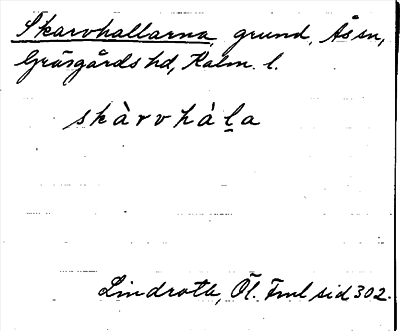 Skarvhallarna, grund, Ås sn,
Gräsgårds hd, Kalm. l.
skàrvhàl̲a
Lindroth, Öl. Fml sid 302.